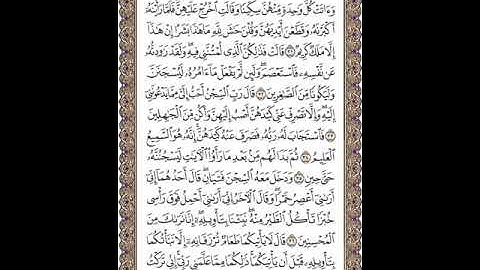 وَءَاتَتْ كُلَّ وَٰحِدَةٍ مِّنْهُنَّ سِكِّينًا وَقَالَتِ ٱخْرُجْ عَلَيْهِنَّ فَلَمَّا رَأَيْنَهُۥٓ
أَكْبَرْنَهُۥ وَقَطَّعْنَ أَيْدِيَهُنَّ وَقُلْنَ حَٰشَ لِلَّهِ مَا هَٰذَا بَشَرًا إِنْ هَٰذَآ
إِلَّا مَلَكٌ كَرِيمٌ ٣١ قَالَتْ فَذَٰلِكُنَّ ٱلَّذِى لُمْتُنَّنِى فِيهِ وَلَقَدْ رَٰوَدتُّهُۥ
عَن نَّفْسِهِۦ فَٱسْتَعْصَمَ وَلَئِن لَّمْ يَفْعَلْ مَآ ءَامُرُهُۥ لَيُسْجَنَنَّ
وَلَيَكُونًا مِّنَ ٱلصَّٰغِرِينَ ٣٢ قَالَ رَبِّ ٱلسِّجْنُ أَحَبُّ إِلَىَّ مِمَّا يَدْعُونَنِىٓ
إِلَيْهِ وَإِلَّا تَصْرِفْ عَنِّى كَيْدَهُنَّ أَصْبُ إِلَيْهِنَّ وَأَكُن مِّنَ ٱلْجَٰهِلِينَ
٣٣ فَٱسْتَجَابَ لَهُۥ رَبُّهُۥ فَصَرَفَ عَنْهُ كَيْدَهُنَّ إِنَّهُۥ هُوَ ٱلسَّمِيعُ
ٱلْعَلِيمُ ٣٤ ثُمَّ بَدَا لَهُم مِّنۢ بَعْدِ مَا رَأَوُا۟ ٱلْءَايَٰتِ لَيَسْجُنُنَّهُۥ
حَتَّىٰ حِينٍ ٣٥ وَدَخَلَ مَعَهُ ٱلسِّجْنَ فَتَيَانِ قَالَ أَحَدُهُمَآ إِنِّىٓ
أَرَىٰنِىٓ أَعْصِرُ خَمْرًا وَقَالَ ٱلْءَاخَرُ إِنِّىٓ أَرَىٰنِىٓ أَحْمِلُ فَوْقَ رَأْسِى
خُبْزًا تَأْكُلُ ٱلطَّيْرُ مِنْهُ نَبِّئْنَا بِتَأْوِيلِهِۦٓ إِنَّا نَرَىٰكَ مِنَ
ٱلْمُحْسِنِينَ ٣٦ قَالَ لَا يَأْتِيكُمَا طَعَامٌ تُرْزَقَانِهِۦٓ إِلَّا نَبَّأْتُكُمَا
بِتَأْوِيلِهِۦ قَبْلَ أَن يَأْتِيَكُمَا ذَٰلِكُمَا مِمَّا عَلَّمَنِى رَبِّىٓ إِنِّى تَرَكْتُ